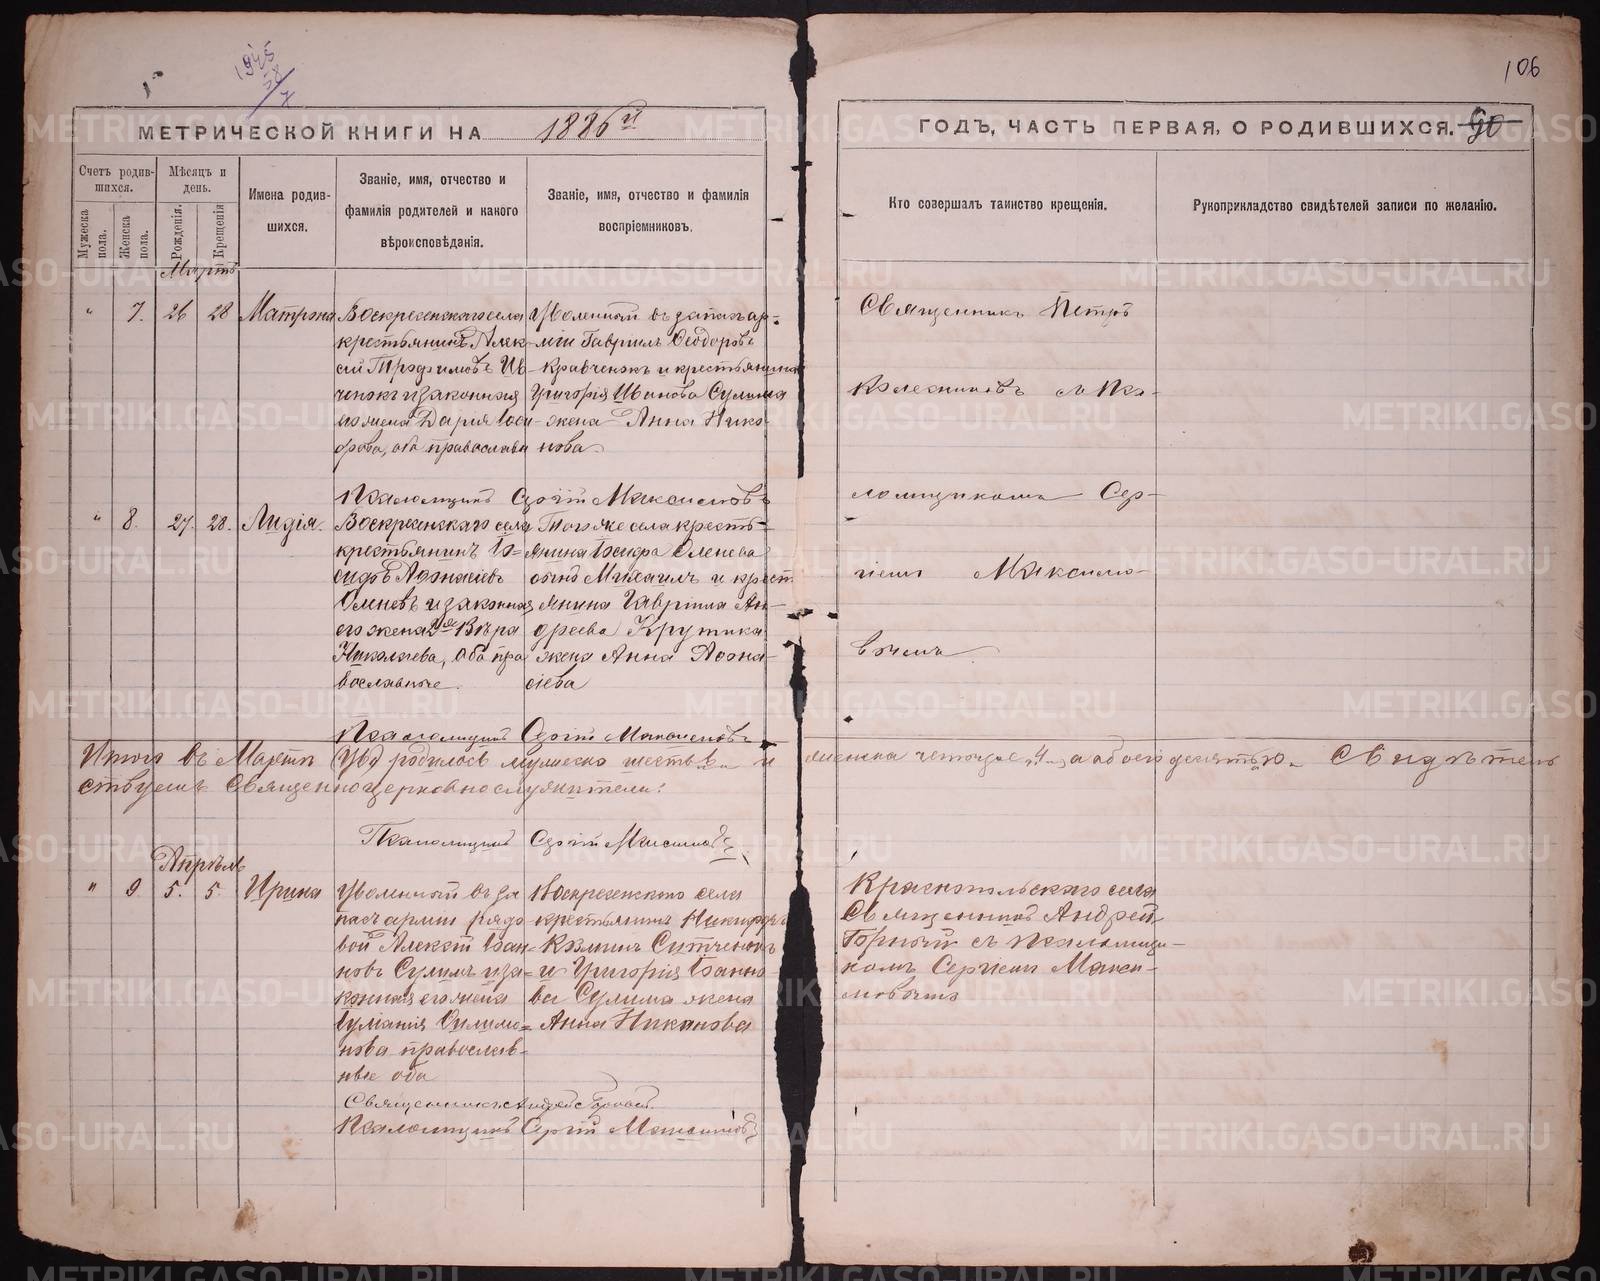 1945
58
7
106
МЕТРИЧЕСКОЙ КНИГИ НА 1886й
ГОДЪ, ЧАСТЬ ПЕРВАЯ, О РОДИВШИХСЯ. 90
Счетъ родив-
шихся.
Мужеска пола.
Женска пола.
Мѣсяцъ и
день.
Рожденія.
Крещенія
Имена родив-
шихся.
Званіе, имя, отчество и
фамилія родителей и какого
вѣроисповѣданія.
Званіе, имя, отчество и фамилія
воспріемниковъ.
Кто совершалъ таинство крещенія.
Рукоприкладство свидѣтелей записи по желанію.
Мартъ
" 7. 26 28 Матрона
Воскресенскаго села
крестьянинъ Алек-
сій Трофимовъ Ив-
ченокъ и законная
его жена Дарія
православн
Уволенный въ запасъ ар-
міи Гавріилъ Ѳеодоровъ
Кравченокъ и крестьянина
Григорія Иванова Сулима
жена Анна Нико-
нова.
Священникъ Петръ
Колесниковъ съ Пса-
ломщикомъ Сер-
гіемъ Максимо-
вичемъ
Псаломщикъ Сергій Максимовъ
" 8. 27. 28. Лидія.
Воскресенскаго села
крестьянинъ
Аѳанасіевъ
Оленевъ и законная
его жена 2я Вѣра
Николаева, оба пра
вославные.
Тогоже села кресть-
янина Оленева
сынъ Михаилъ и крест
янина Гавріила Ан-
дреева Крутика
жена Анна Аѳона-
сіева
Псаломщикъ Сергій Максимовъ
Итого въ Мартѣ родилось мужеска шесть и женска четыре "4" а обоего десять "10". Свидѣтель
ствуемъ Священноцерковнослужители:
Псаломщикъ Сергій Максимовъ
Апрѣль
" 9 5. 5. Ирина
Уволенный въ за
пасъ арміи рядо
вой Алексій Іоан-
новъ Сулимъ и за-
конная его жена
Филимо-
нова православ-
ные оба
Воскресенскаго села
крестьянинъ Никифоръ
Козминъ Ситченокъ
и Григорія Іоанно-
ва Сулима жена
Анна Никанова
Краснопольскаго села
Священникъ Андрей
Горный съ Псаломщи-
комъ Сергіемъ Макси-
мовымъ
Священникъ Андрей Горный
Псаломщикъ Сергій Максимовъ
METRIKI.GASO-URAL.RU